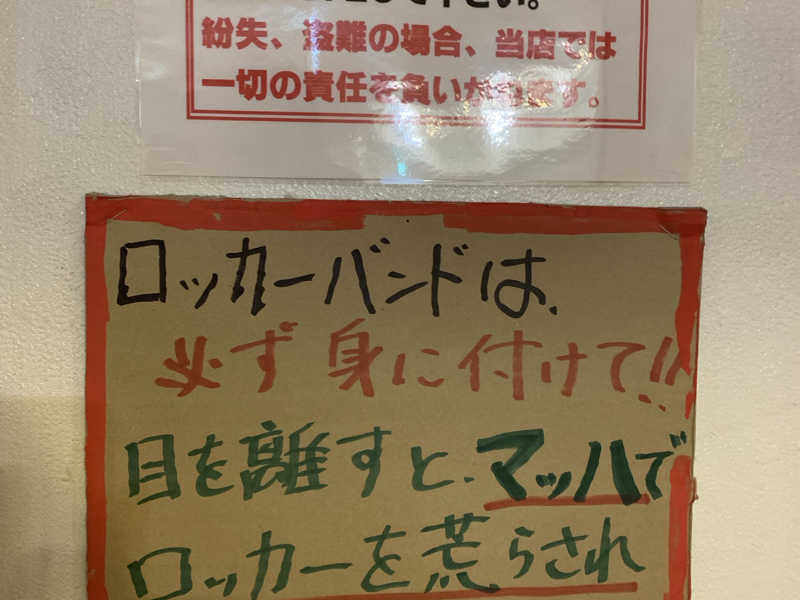 下さい。
紛失、盗難の場合、当店では
一切の責任を負いかねます。
ロッカーバンドは、
必ず身に付けて!!
目を離すと、マッハで
ロッカーを荒らされ